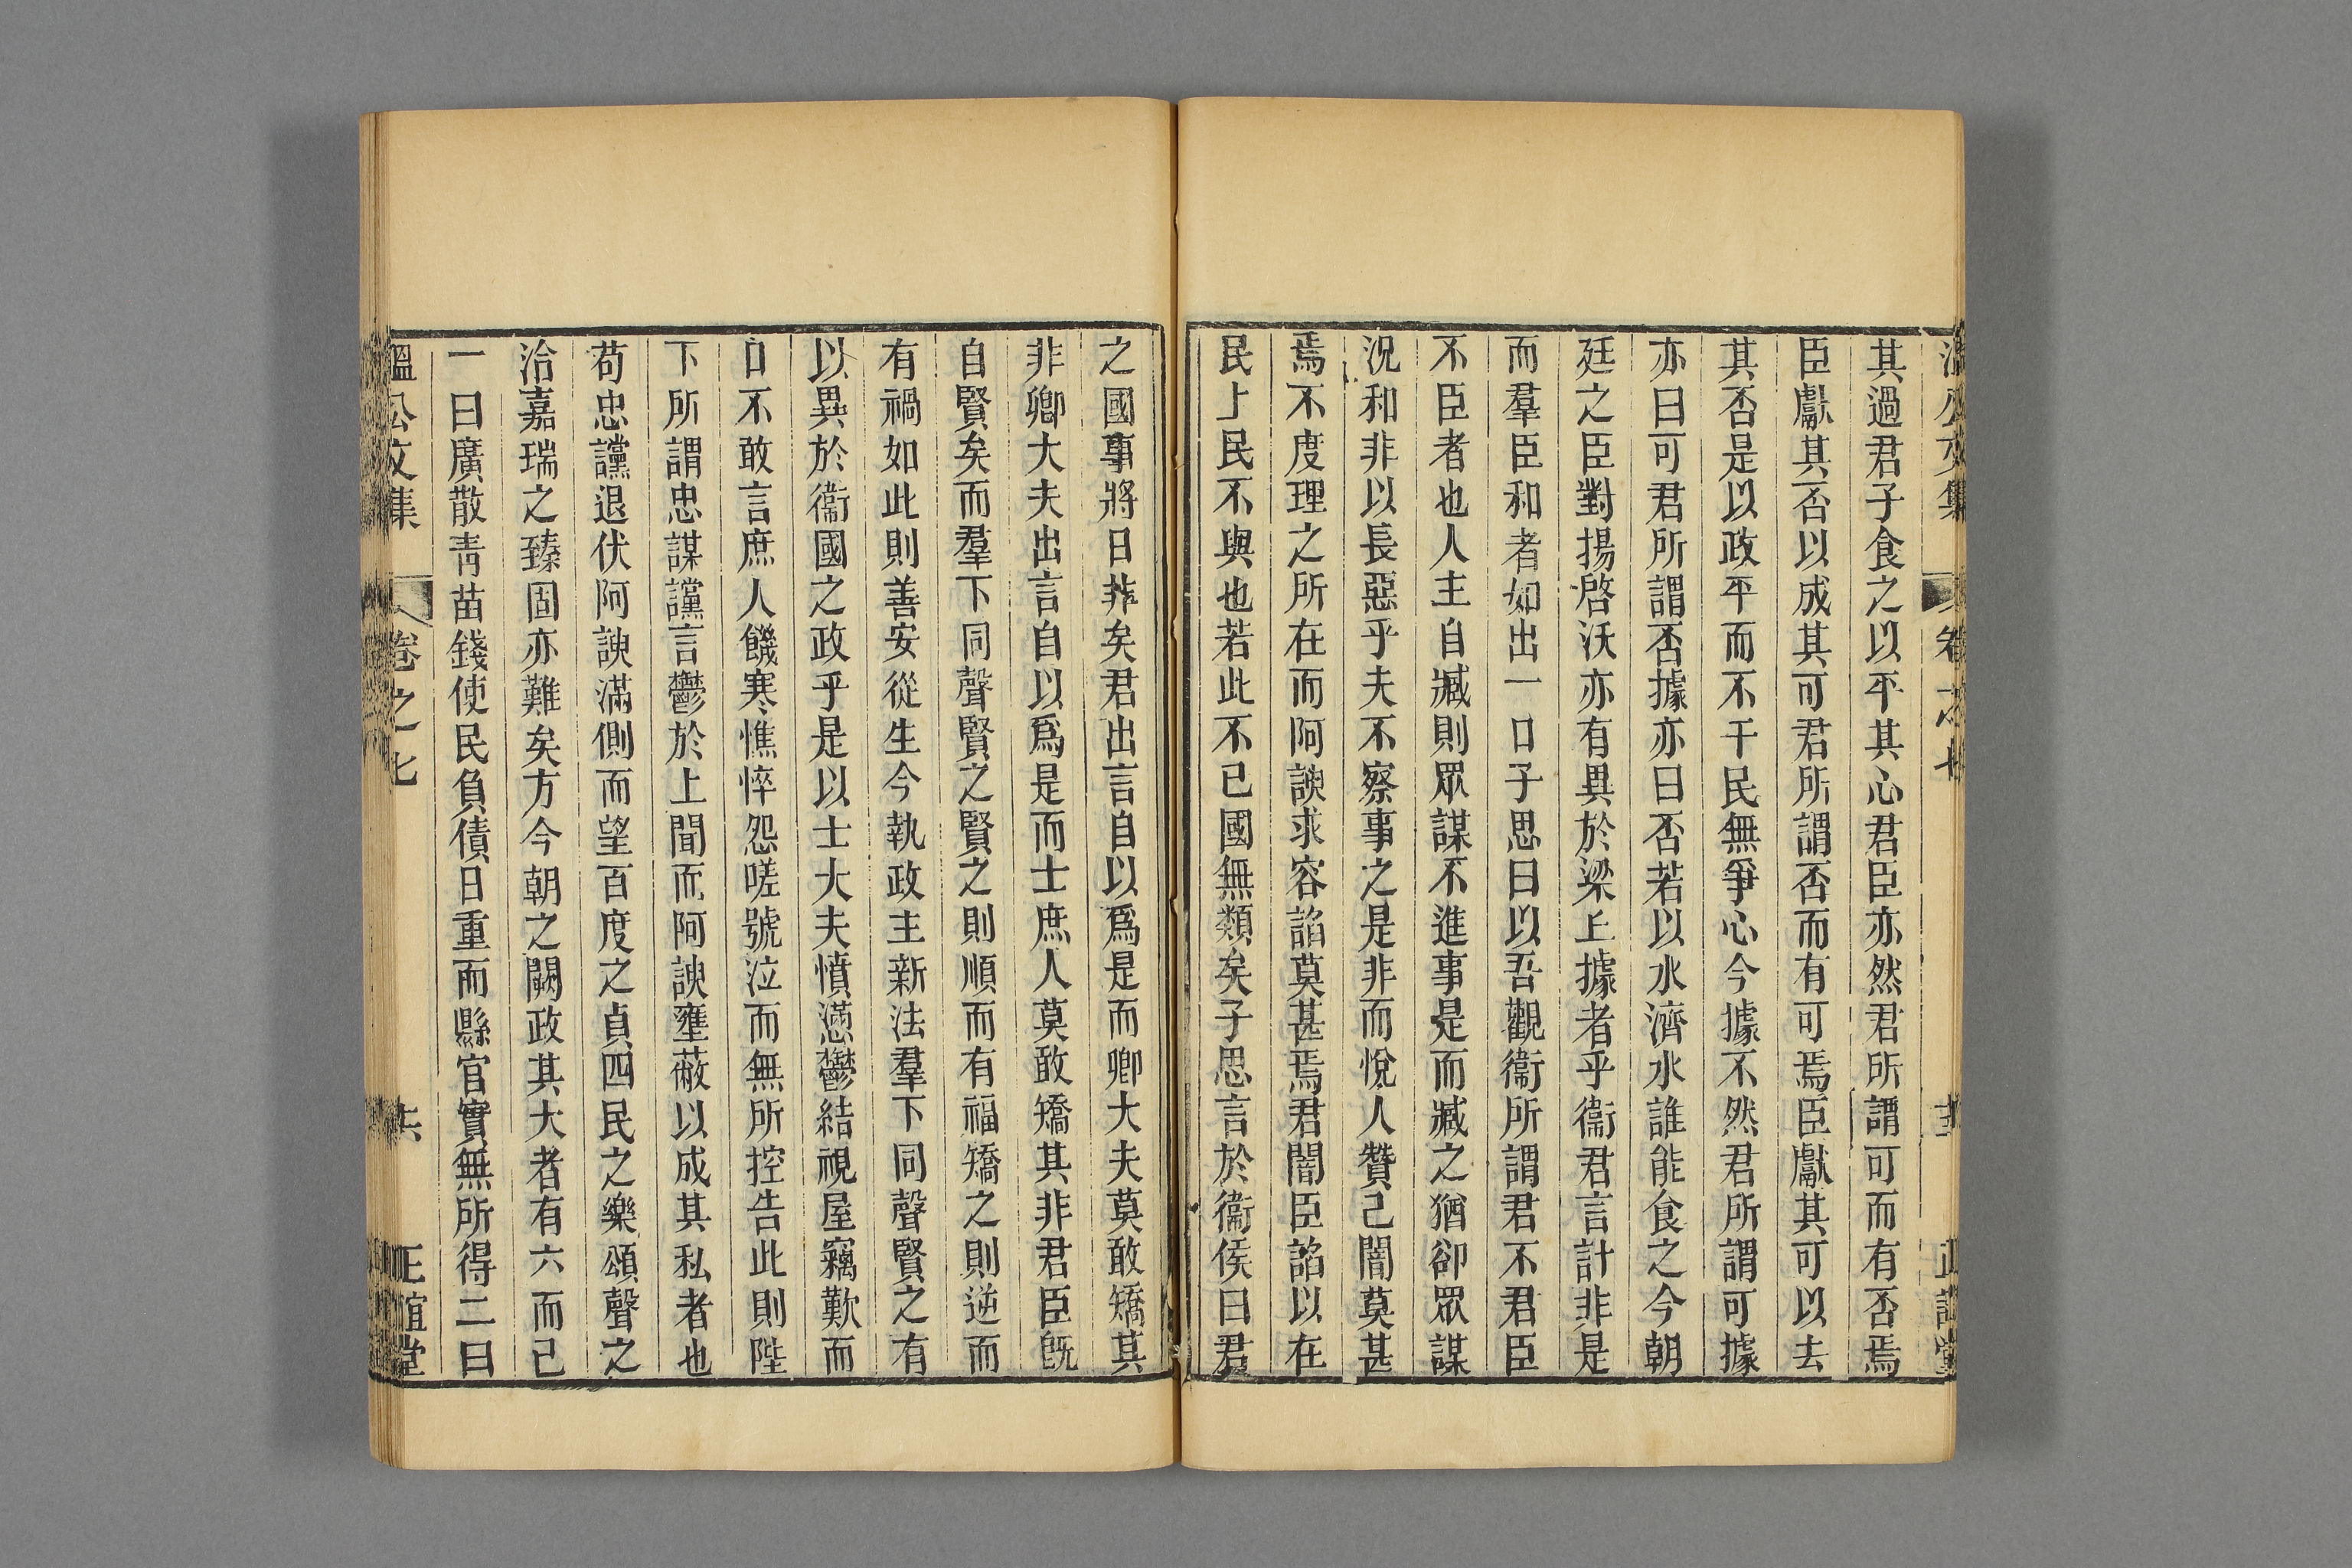 溫公文集 卷之七 十五 正誼堂
其過君子食之以平其心君臣亦然君所謂可而有否焉
臣獻其否以成其可君所謂否而有可焉臣獻其可以去
其否是以政平而不干民無爭心今據不然君所謂可據
亦曰可君所謂否據亦曰否若以水濟水誰能食之今朝
廷之臣對揚啓沃亦有異於梁上據者乎衞君言計非是
而羣臣和者如出一口子思曰以吾觀衞所謂君不君臣
不臣者也人主自臧則眾謀不進事是而臧之猶卻眾謀
況和非以長惡乎夫不察事之是非而悅人贊己闇莫甚
焉不度理之所在而阿諛求容諂莫甚焉君闇臣諂以在
民上民不與也若此不已國無類矣子思言於衞侯曰君
之國事將日非矣君出言自以爲是而卿大夫莫敢矯其
非卿大夫出言自以爲是而士庶人莫敢矯其非君臣旣
自賢矣而羣下同聲賢之賢之則順而有福矯之則逆而
有禍如此則善安從生今執政主新法羣下同聲賢之有
以異於衞國之政乎是以士大夫憤懣鬱結視屋竊歎而
口不敢言庶人饑寒憔悴怨嗟號泣而無所控告此則陛
下所謂忠謀讜言鬱於上聞而阿諛壅蔽以成其私者也
苟忠讜退伏阿諛滿側而望百度之貞四民之樂頌聲之
洽嘉瑞之臻固亦難矣方今朝之闕政其大者有六而已
一曰廣散靑苗錢使民負債日重而縣官實無所得二曰
溫公文集 卷之七 十六 正誼堂